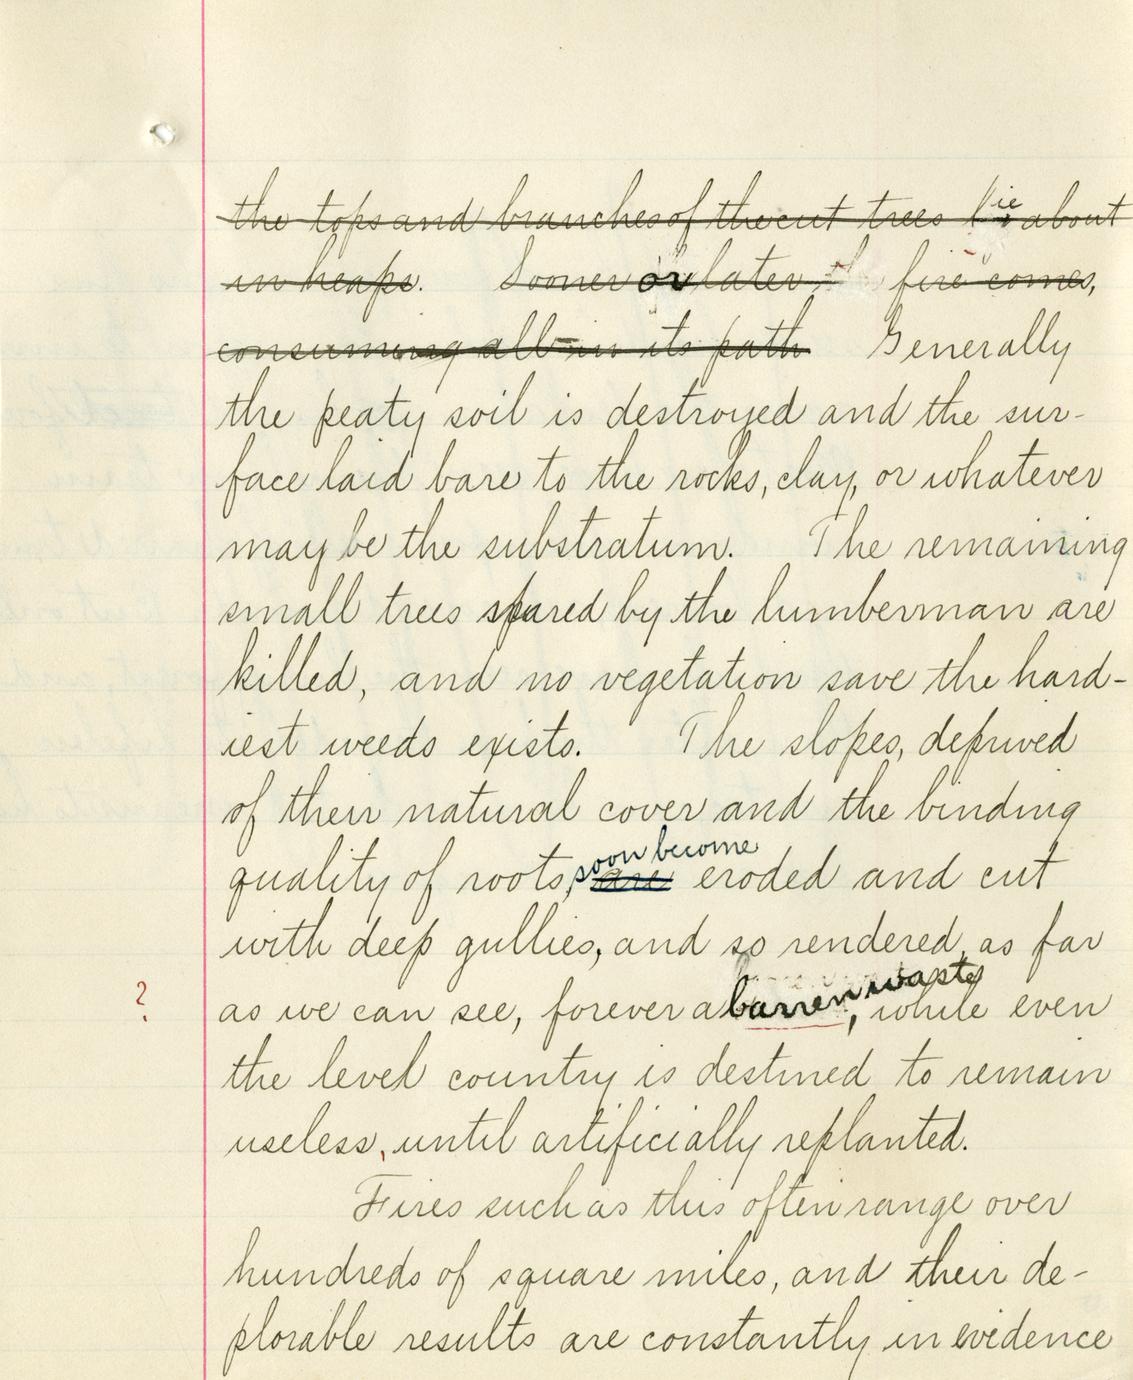 the tops and branches of the cut trees lie about
in heaps. Sooner or later fire comes,
consuming all in its path Generally
the peaty soil is destroyed and the sur-
face laid bare to the rocks, clay, or whatever
may be the substratum. The remaining
small trees spared by the lumberman are
killed, and no vegetation save the hard-
iest weeds exists. The slopes, deprived
of their natural cover and the binding
soon become
quality of roots, are eroded and cut
with deep gullies, and so rendered, as far
? as we can see, forever a barren waste, while even
the level country is destined to remain
useless, until artificially replanted.
Fires such as this often range over
hundreds of square miles, and their de-
plorable results are constantly in evidence